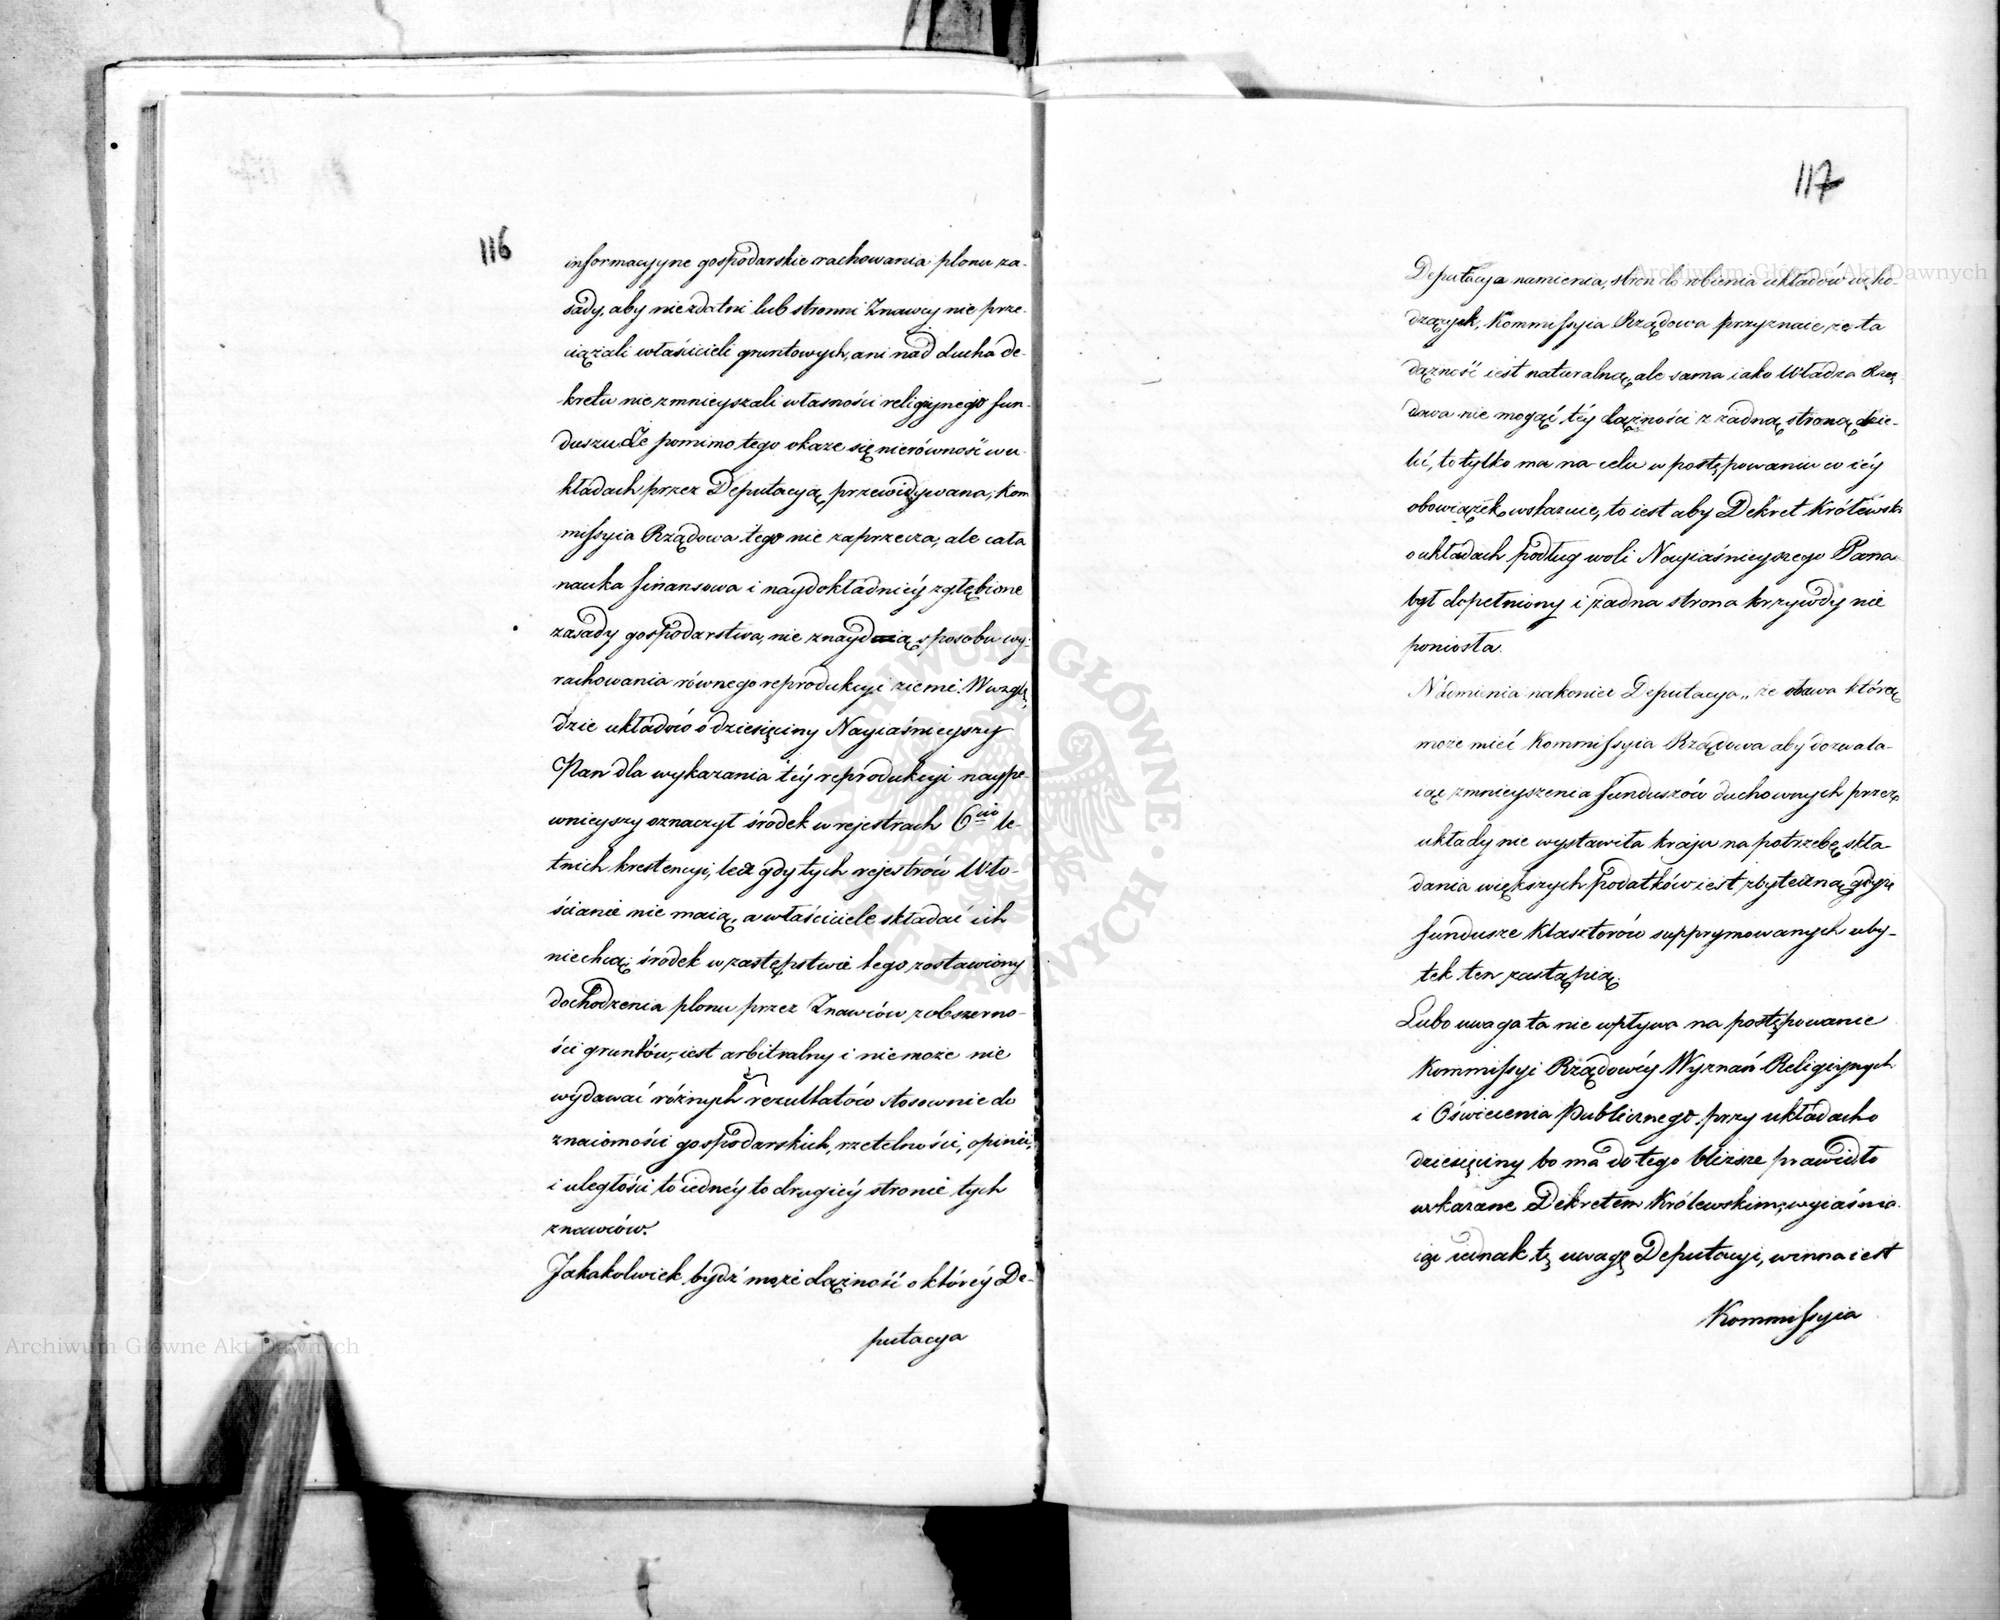 116
informacyyne gospodarskie rachowania plonu za-
sady, aby niezdatni lub stronni Znawcy nie prze-
ciążali właścicieli gruntowych, ani nad ducha de-
kretu nie zmnieyszali własności religiynego fun-
duszu. Że pomimo tego okaże się nierówność w u-
kładach przez Deputacyą przewidywana, Kom
missyia Rządowa tego nie zaprzecza, ale cała
nauka finansowa i naydokładniéy zgłębione
zasady gospodarstwa, nie znaydą sposobu wy-
rachowania równego reprodukcyi ziemi. Wwzglę
dzie układów o dziesięciny Nayiaśnieyszy
Pan dla wykazania téy reprodukcyi naype-
wnieyszy oznaczył środek w rejestrach 6cio le-
tnich krestencyi, lecz gdy tych rejestrów Wło-
ścianie nie maią, a właściciele składać ich
niechcą środek w zastępstwie tego zostawiony
dochodzenia plonu przez Znawców z obszerno-
ści gruntów, iest arbitralny i niemoże nie
wydawać różnych rezultatów stosownie do
znaiomości gospodarskich, rzetelności, opinii,
i uległości to iednéy to drugiéy stronie tych
znawców.
Jakakolwiek bydź może dążność o któréy De-
putacya
117
Deputacya namienia, stron do robienia układów wcho-
dzących, Kommissyia Rządowa przyznaie, że ta
dążność iest naturalną, ale sama iako Władza Rzą
dowa nie mogąć téy dążności z żadną stroną dzie-
lić, to tylko ma na celu w postępowaniu co iéy
obowiązek wskazuie, to iest aby Dekret Królewski
o układach podług woli Nayiaśnieyszego Pana
był dopełniony i żadna strona krzywdy nie
poniosła.
Nadmienia nakoniec Deputacya „że obawa którą
może mieć Kommissyia Rządowa aby dozwala-
iąc zmnieyszenia funduszów duchownych przez
układy nie wystawiła kraju na potrzebę skła-
dania większych podatków iest zbyteczną, gdyż
fundusze Klasztorów supprymowanych uby-
tek ten zastąpią.
Lubo uwaga ta nie wpływa na postępowanie
Kommissyi Rządowéy Wyznań Religiynych
i Oświecenia Publicznego przy układach o
dziesięciny bo ma do tego bliższe prawidło
wskazane Dekretem Królewskim, wyiaśnia
iąc iednak tę uwagę Deputacyi, winna iest
Kommissyia
Archiwum Główne Akt Dawnych
Archiwum Główne Akt Dawnych
ARCHIWUM GŁÓWNE AKT DAWNYCH